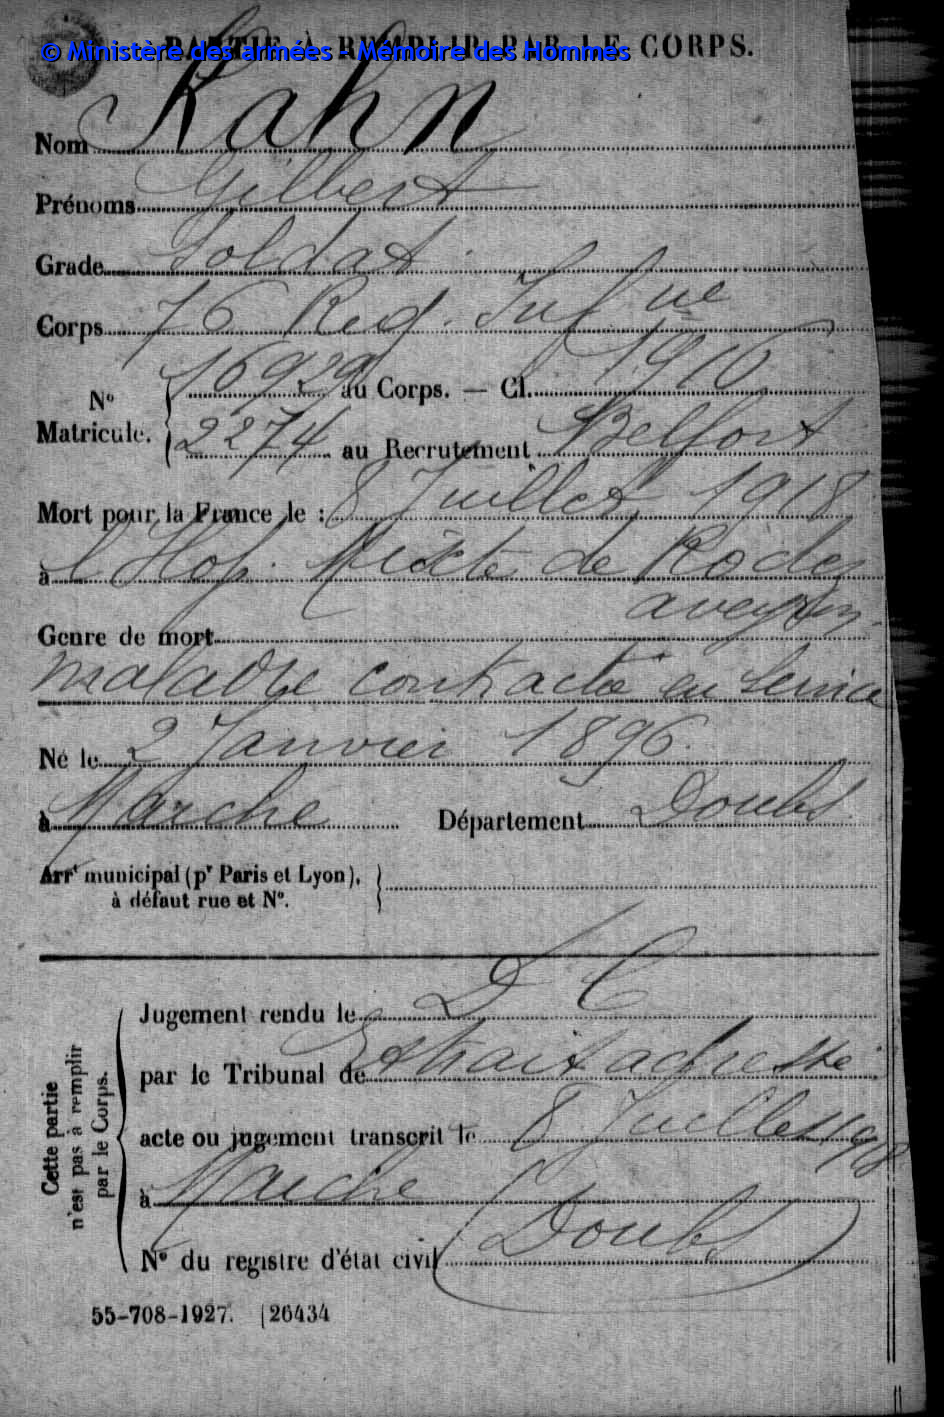 © Ministère des armées - Mémoire des Hommes
PARTIE À REMPLIR PAR LE CORPS.
Nom Kahn
Prénoms Gilbert
Grade Soldat
Corps 76 Reg. Inf ie
N° Matricule. { 16929 au Corps. — Cl. 1916
2274 au Recrutement Belfort
Mort pour la France le : 8 Juillet 1918
à l'Hop. Mixte de Rodez
aveyron
Genre de mort
maladie contractée en Service
Né le 2 Janvier 1896
à Maiche Département Doubs
Arrt municipal (pr Paris et Lyon),
à défaut rue et N°.
Cette partie
n'est pas à remplir
par le Corps.
Jugement rendu le D C
par le Tribunal de Extrait adressé
acte ou jugement transcrit le 8 Juillet 1918
à Maiche
N° du registre d'état civil (Doubs)
55-708-1927. [26434